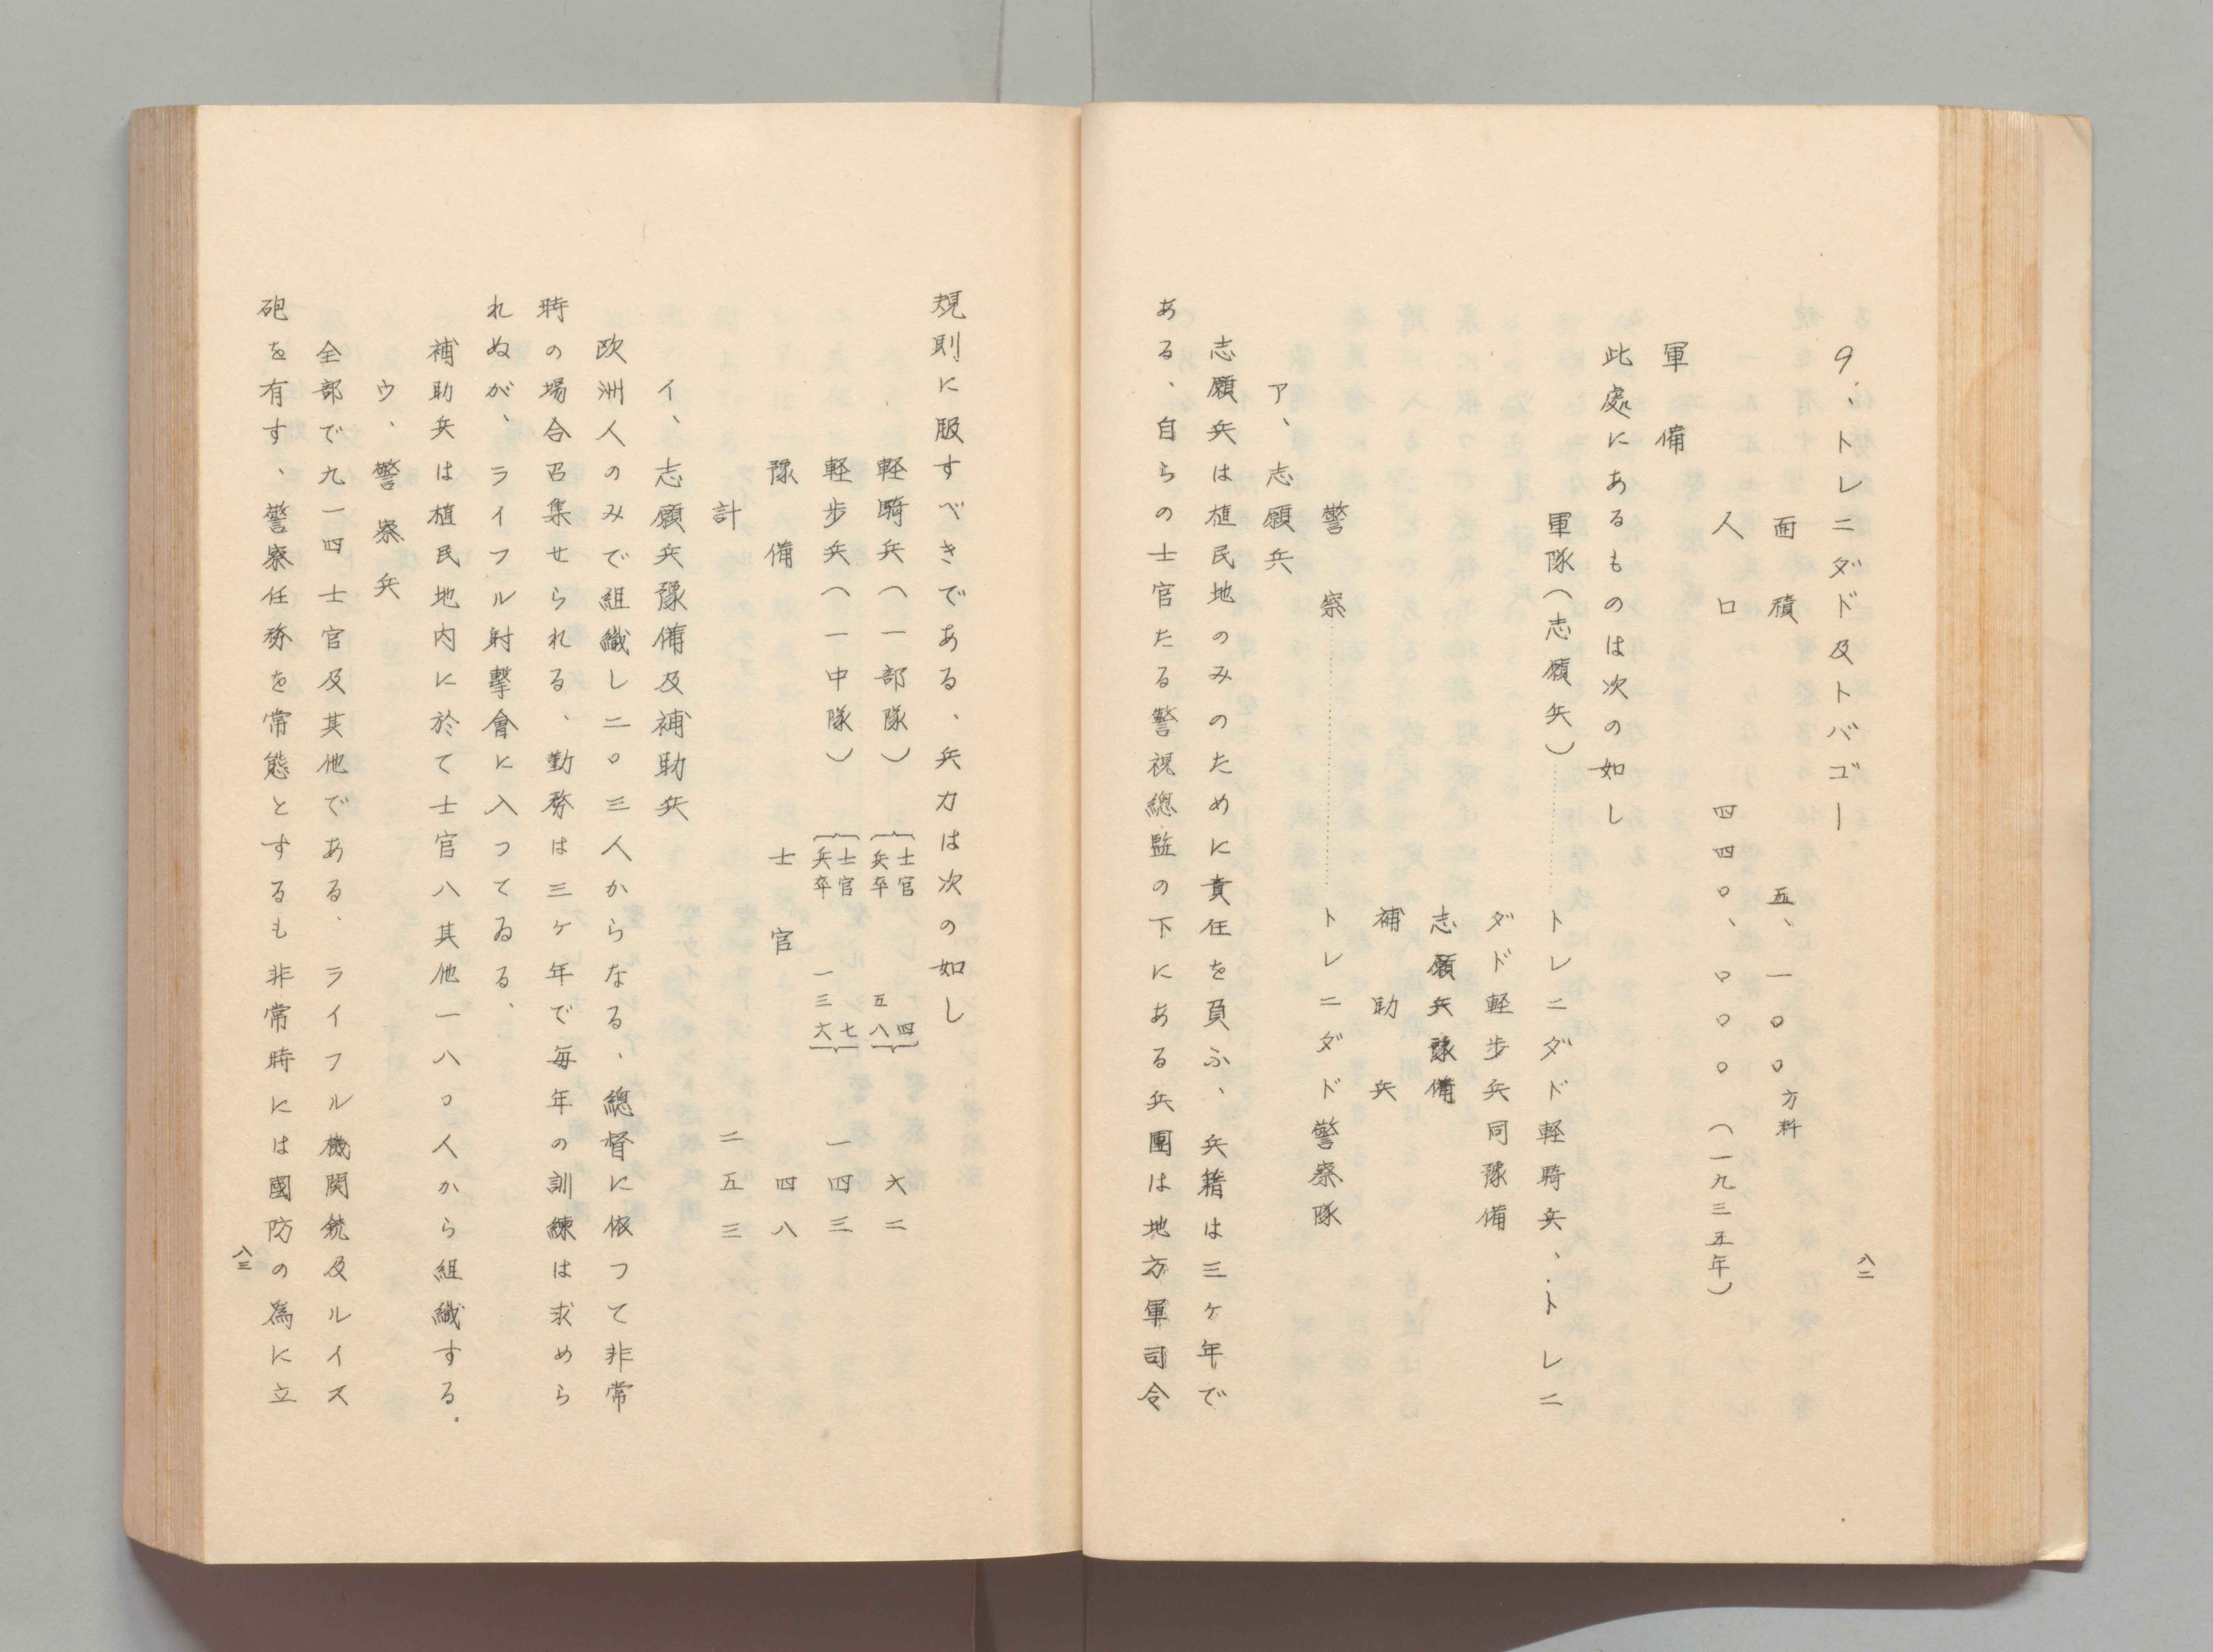 八二
9、トレニダド及トバゴー
面積 五、一〇〇方粁
人口 四四〇、〇〇〇（一九三五年）
軍備
此處にあるものは次の如し
軍隊（志願兵）…………トレニダド軽騎兵、トレニ
ダド軽歩兵同豫備
志願兵豫備
補助兵
警察…………………………トレニダド警察隊
ア、志願兵
志願兵は植民地のみのために責任を負ふ、兵籍は三ヶ年で
ある、自らの士官たる警視總監の下にある兵團は地方軍司令
規則に服すべきである、兵力は次の如し
軽騎兵（一部隊）｛士官 四 兵卒 五八｝ 六二
軽歩兵（一中隊）｛士官 七 兵卒 一三六｝ 一四三
豫備 士官 四八
計 二五三
イ、志願兵豫備及補助兵
欧洲人のみで組織し二〇三人からなる、總督に依つて非常
時の場合召集せられる、勤務は三ヶ年で毎年の訓練は求めら
れぬが、ライフル射擊會に入つてゐる、
補助兵は植民地内に於て士官八其他一八〇人から組織する.
ウ、警察兵
全部で九一四士官及其他である、ライフル機関銃及ルイス
砲を有す、警察任務を常態とするも非常時には國防の為に立
八三